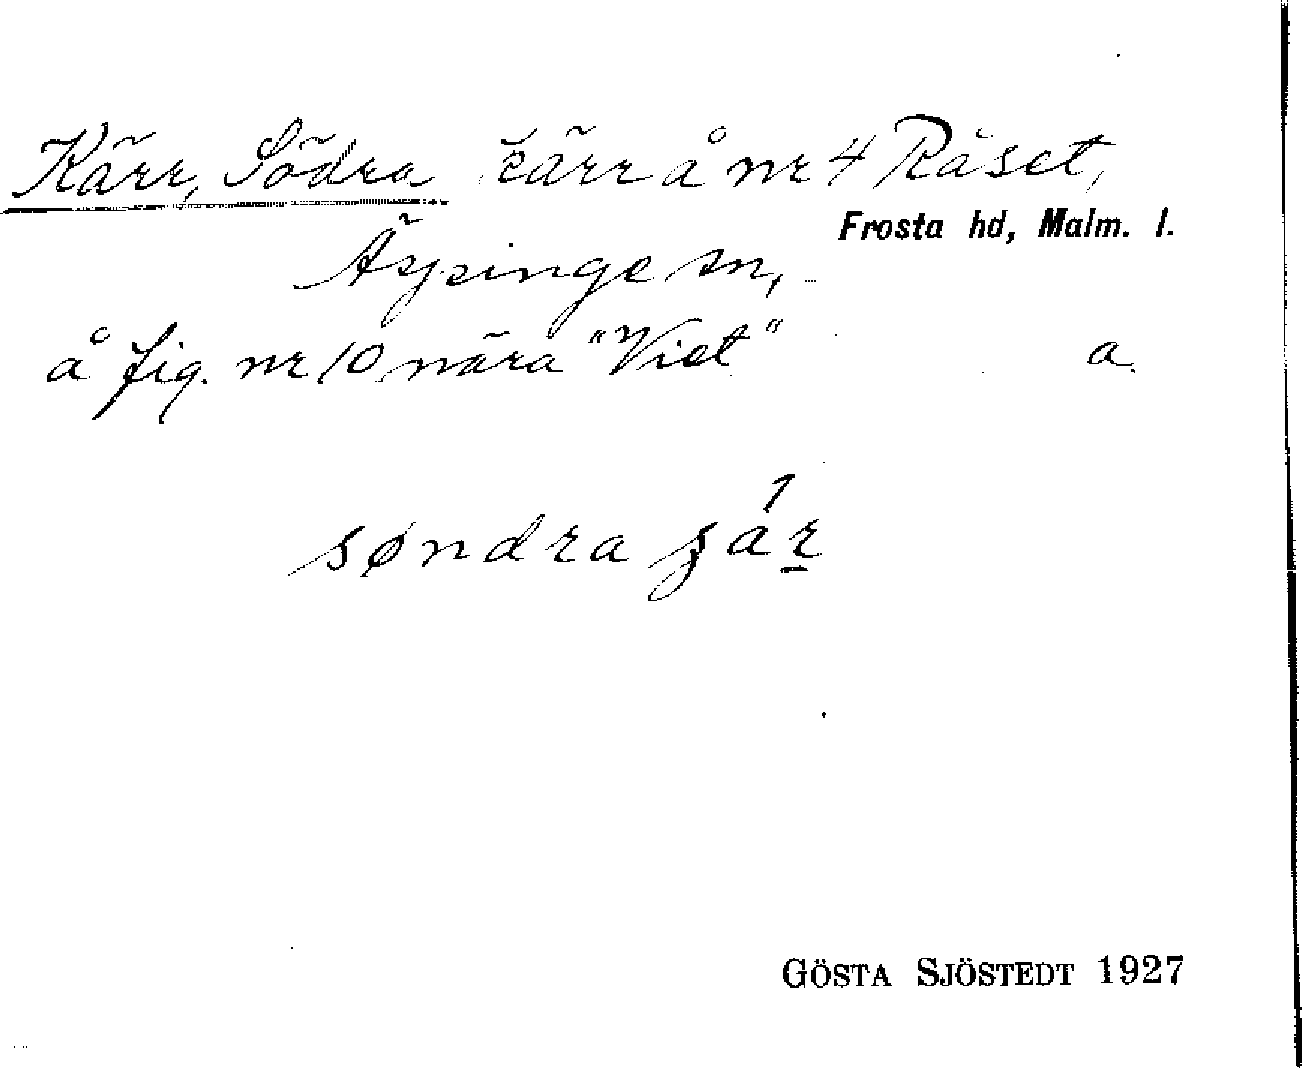 Kärr, Södra kärr å nr 4 Råset,
Frosta hd, Malm. l.
Äspinge sn,
å fig. nr 10 nära "Viet" a.
søndra
GÖSTA SJÖSTEDT 1927